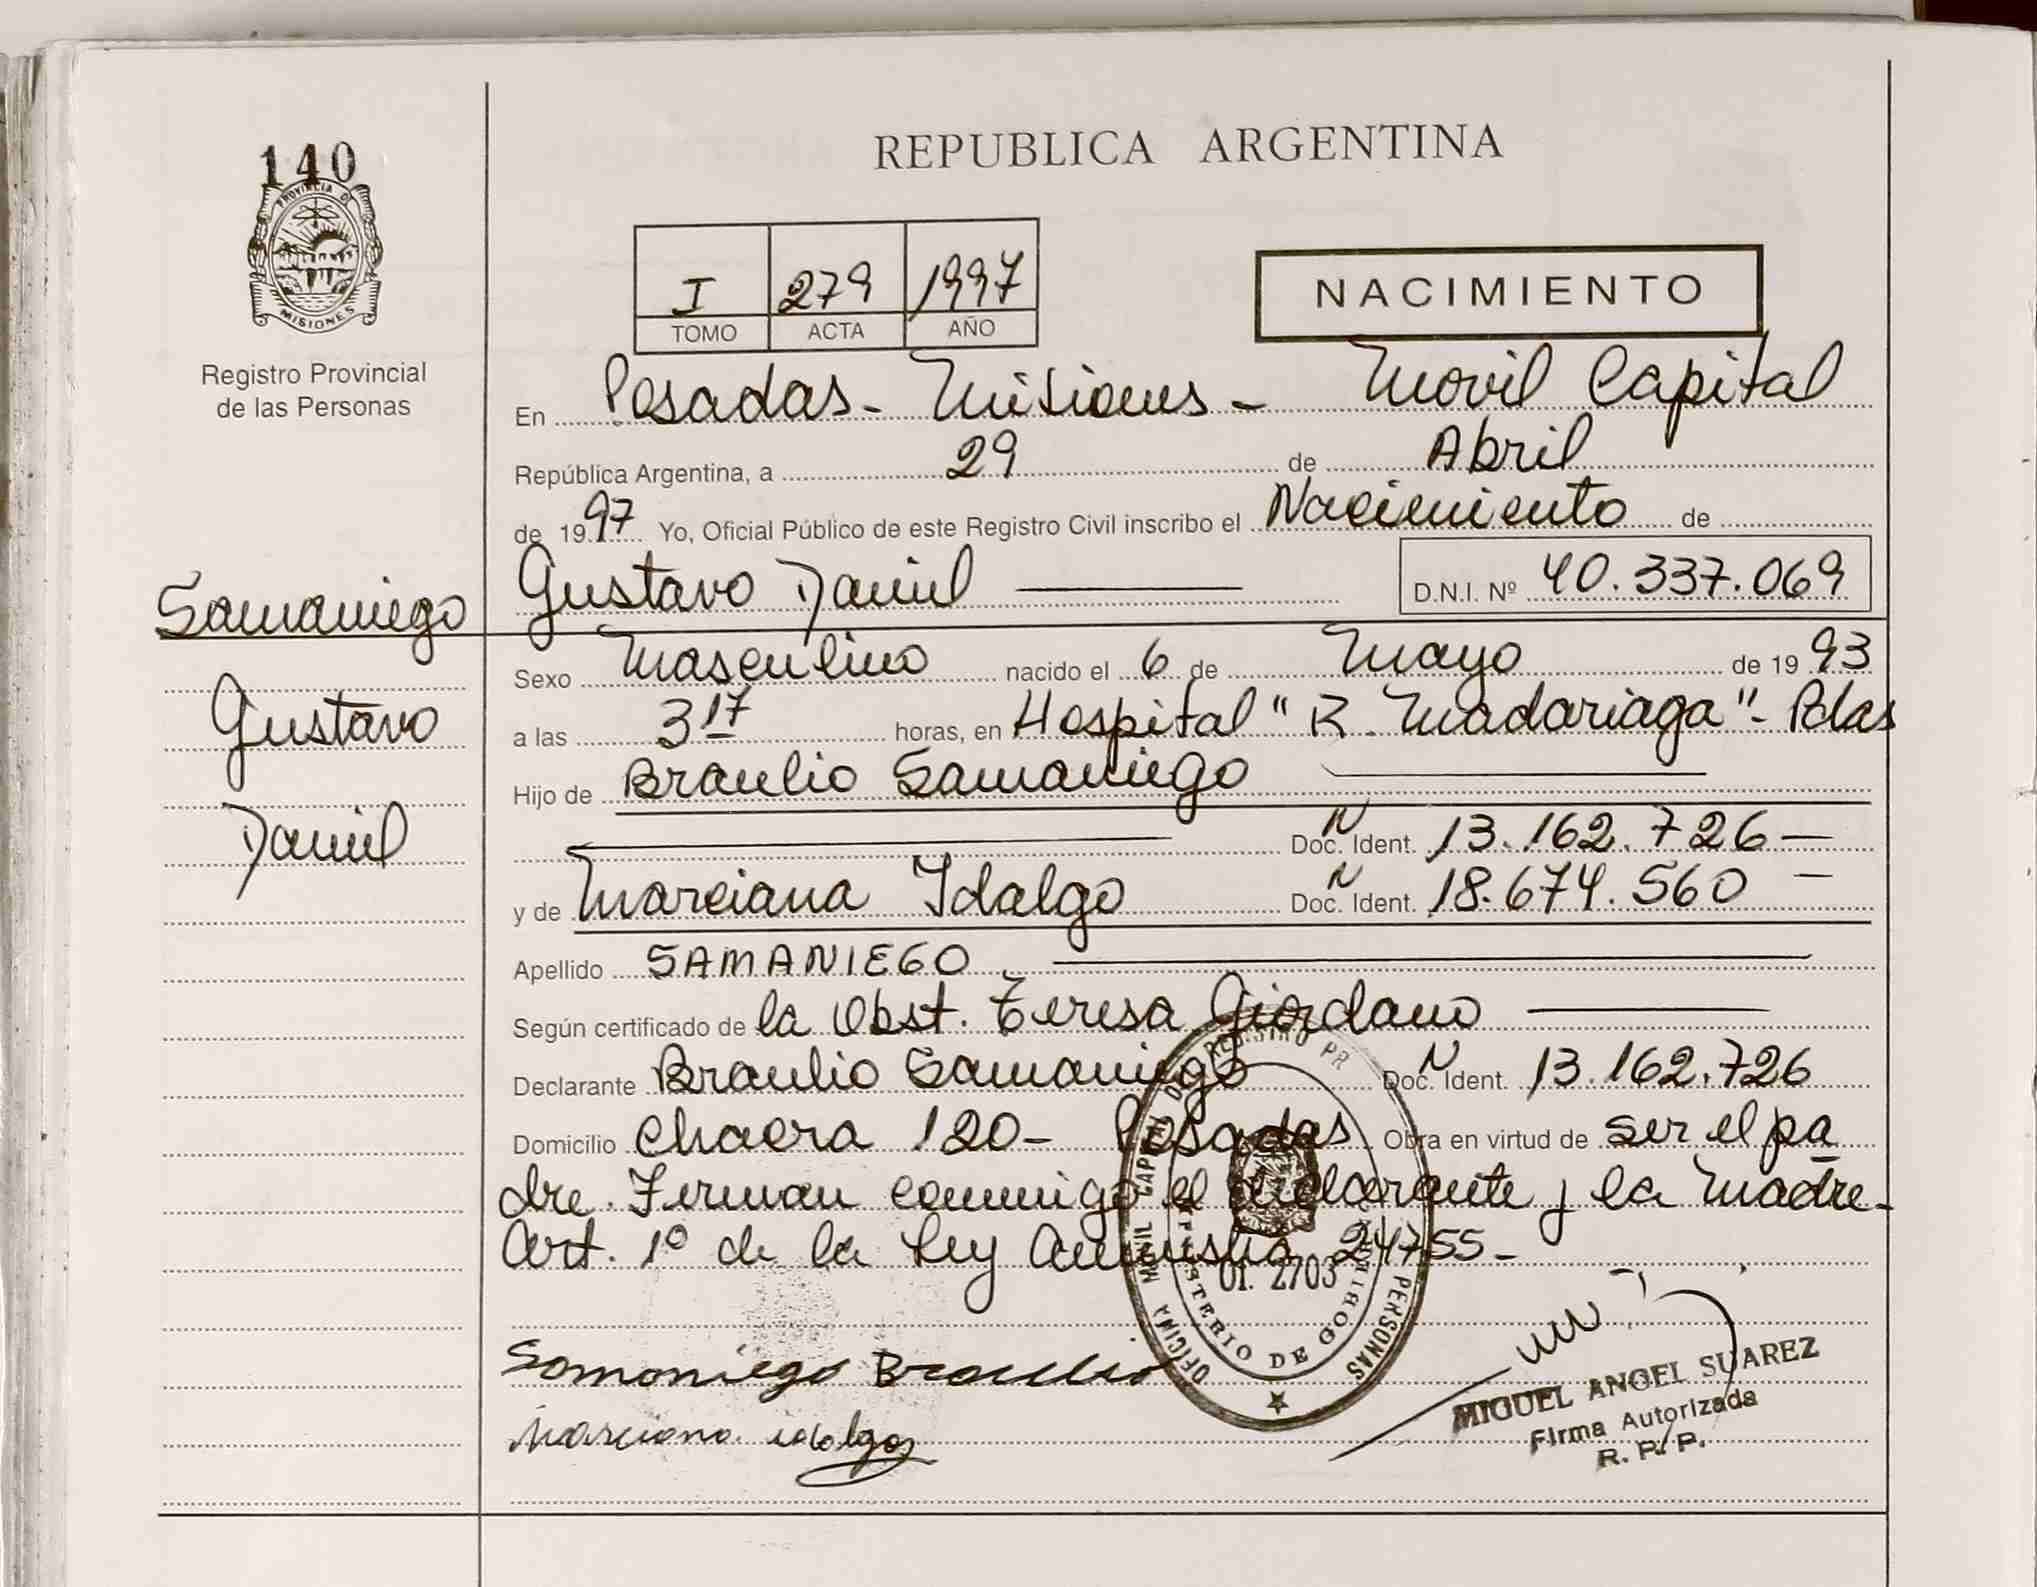 140
PROVINCIA DE
MISIONES
Registro Provincial
de las Personas
Samaniego
Gustavo
Daniel
REPUBLICA ARGENTINA
I 279 1997
TOMO ACTA AÑO
NACIMIENTO
En Posadas - Misiones - Movil Capital
República Argentina, a 29 de Abril
de 1997 Yo, Oficial Público de este Registro Civil inscribo el Nacimiento de
Gustavo Daniel D.N.I. Nº 40.337.069
Sexo Masculino nacido el 6 de Mayo de 1993
a las 3 17 horas, en Hospital "R. Madariaga" - Pdas
Hijo de Braulio Samaniego
Doc. Ident. N 13.162.726 —
y de Marciana Idalgo Doc. Ident. N 18.674.560 —
Apellido SAMANIEGO
Según certificado de la Obst. Teresa Giordano
Declarante Braulio Samaniego Doc. Ident. N 13.162.726
Domicilio Chacra 120 - Posadas Obra en virtud de ser el pa
dre. Firman conmigo el declarante y la madre -
Art. 1º de la Ley Amnistia 24755 -
OFICINA MOVIL CAPITAL DEL REGISTRO PR PERSONAS
MINISTERIO DE GOBIERNO
Of. 2703
Samaniego Braulio
Marciana idalgo
MIGUEL ANGEL SUAREZ
Firma Autorizada
R. P. P.